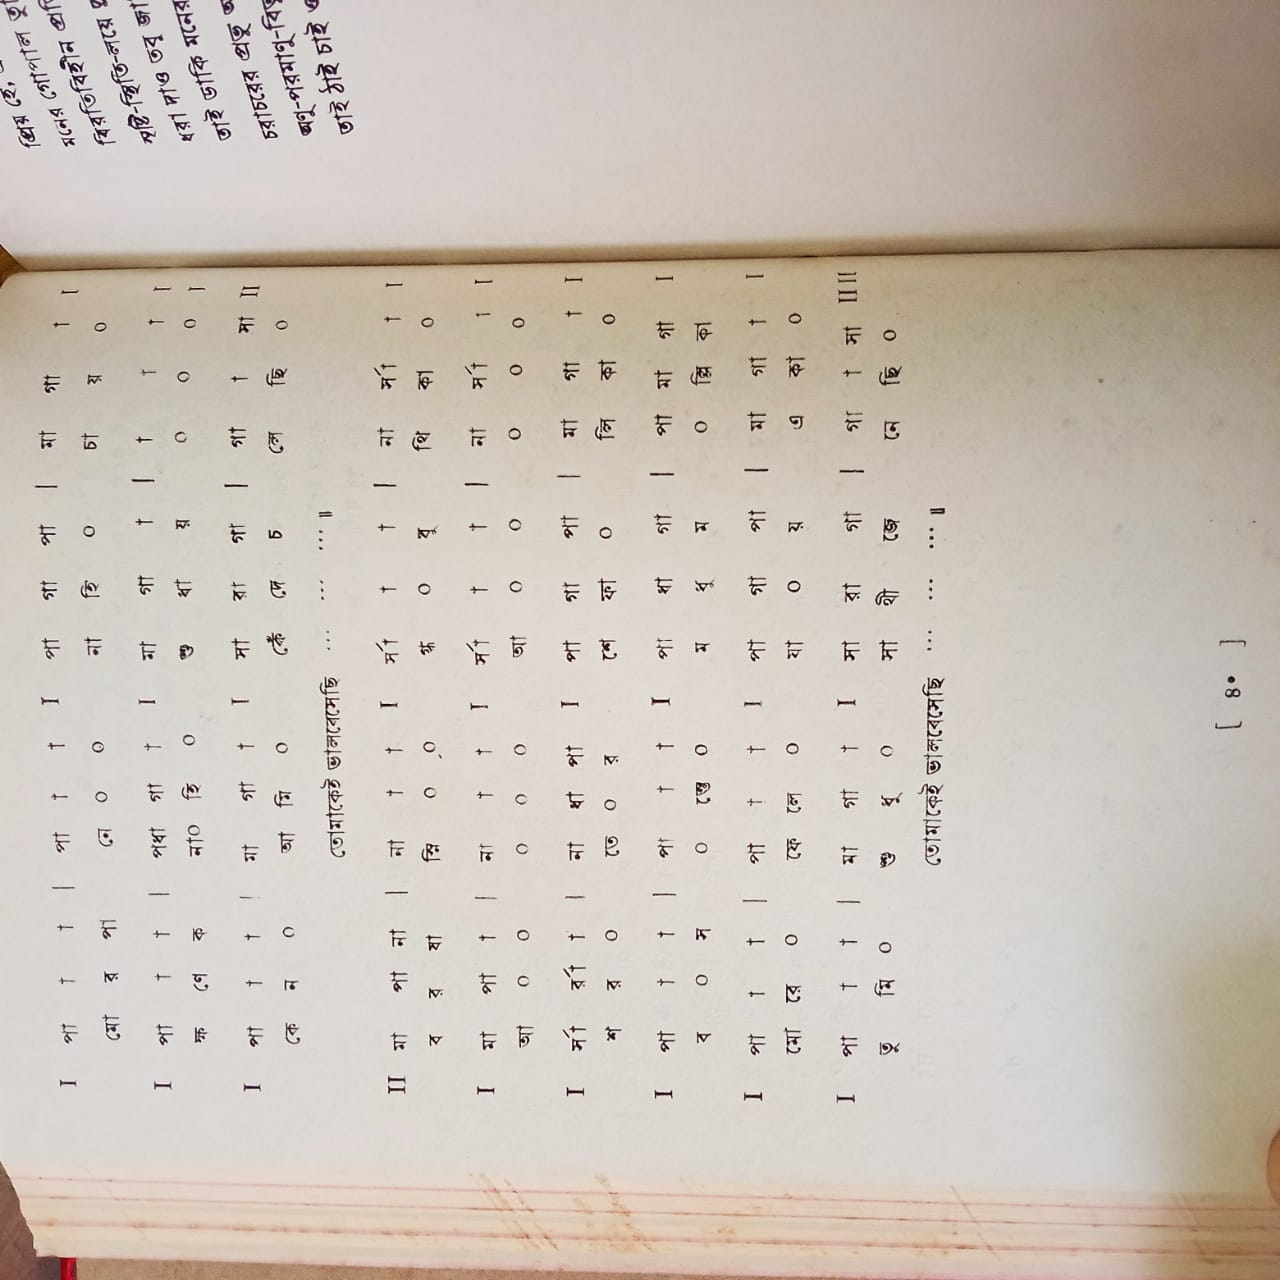 I পা † † | পা † † I পা গা পা | মা গা † I
মো র পা নে ০ ০ না হি ০ চা য় ০
I পা † † | পধা গা † I মা গা † | † † † I
ক্ষ ণে ক না০ হি ০ শু ধা য় ০ ০ ০ I
I পা † † | মা গা † I সা রা গা | গা † সা II
কে ন ০ আ মি ০ কেঁ দে চ লে ছি ০
তোমাকেই ভালবেসেছি ... ... ... ॥
II মা পা না | না † † I র্সা † † | না র্সা † I
ব র ষা ০ ০ ০ বূ থি কা ০
I মা পা † | না † † I র্সা † † | না র্সা † I
আ ০ ০ ০ ০ ০ আ ০ ০ ০ ০ ০
I র্সা র্রা † | না ধা পা I পা গা পা | মা গা † I
শ র ০ তে ০ র শে ফা ০ লি কা ০
I পা † † | পা † † I পা ধা গা | পা মা গা I
ব ০ স ০ ন্তে ০ ম ধু ম ০ ল্লি কা
I পা † † | পা † † I পা গা পা | মা গা † I
মো রে ০ ফে লে ০ যা ০ য় এ কা ০
I পা † † | মা গা † I সা রা গা | গা † সা II II
তু মি ০ শু ধু ০ সা থী জে নে ছি ০
তোমাকেই ভালবেসেছি ... ... ... ॥
[ ৪০ ]
প্রিয় হে,
মনের গোপাল
বিরতিবিহীন
সৃষ্টি-স্থিতি-লয়ে
ধরা দাও তবু
তাই ডাকি মনের
চরাচরের প্রভু
অণু-পরমাণু
তাই ঠাঁই চাই